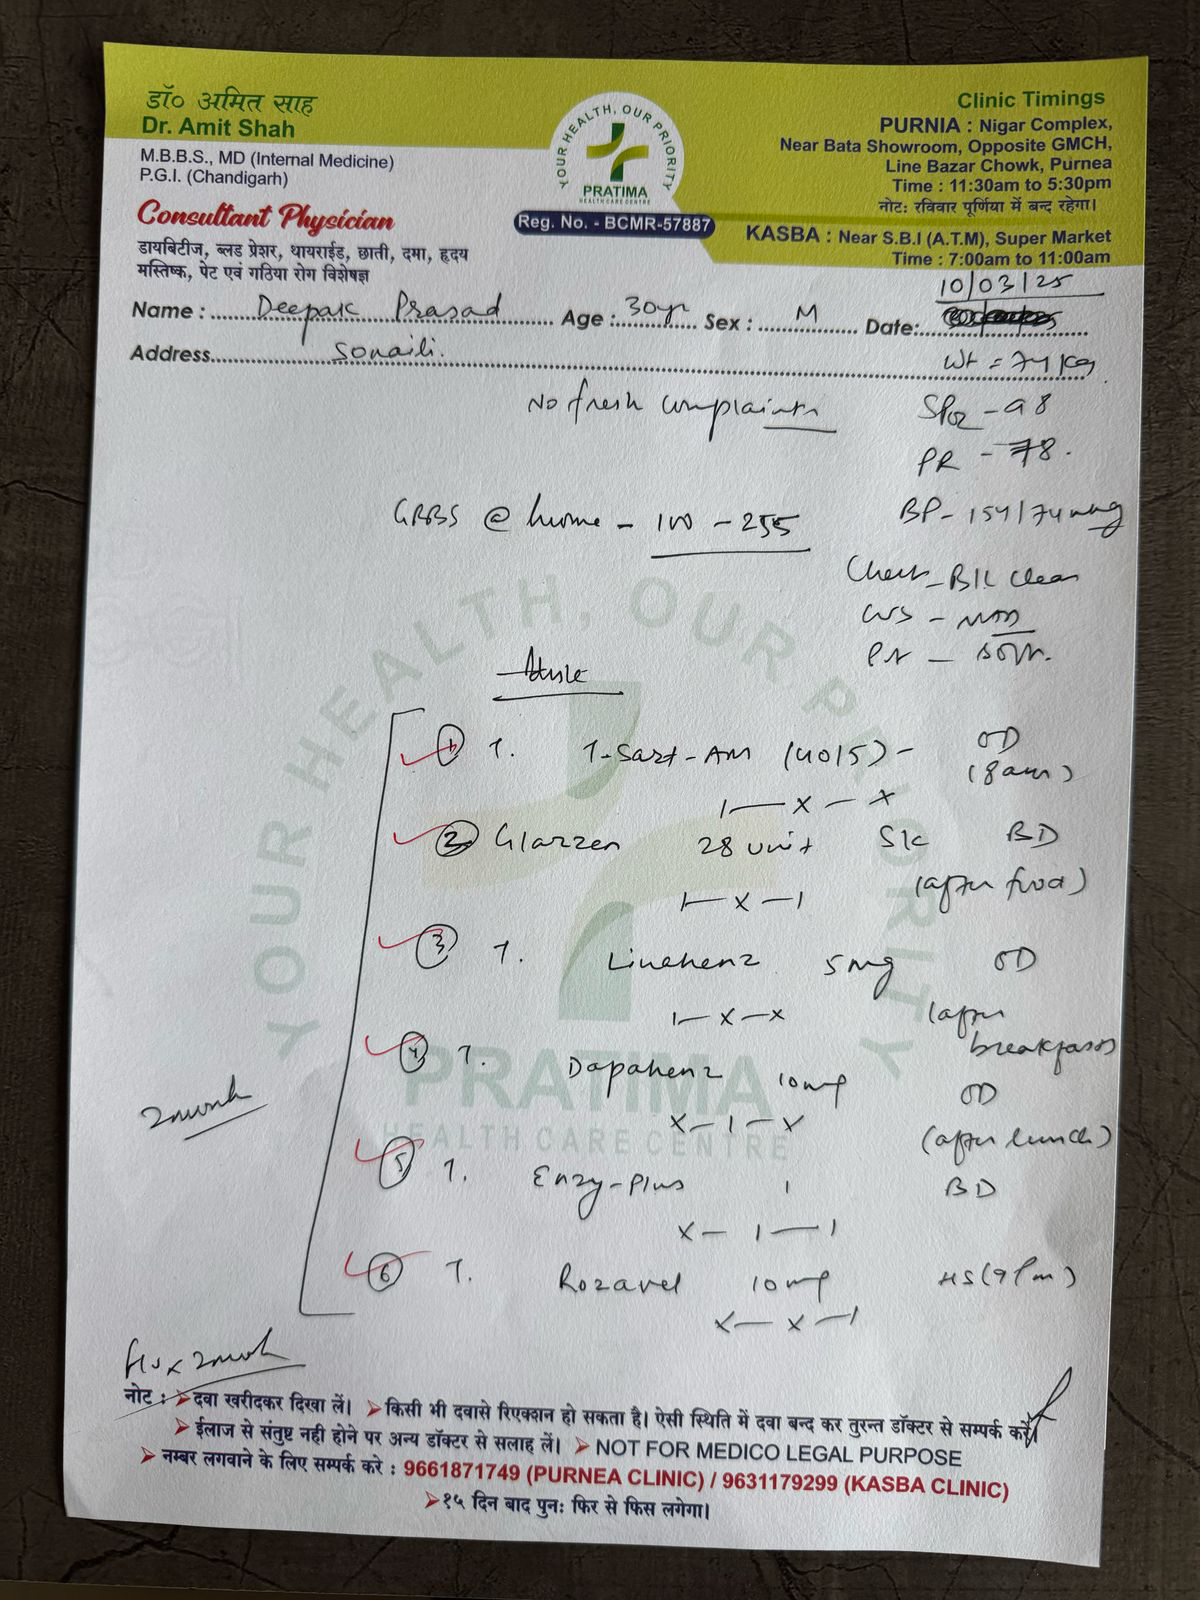 डॉ० अमित साह
Dr. Amit Shah
M.B.B.S., MD (Internal Medicine)
P.G.I. (Chandigarh)
Consultant Physician
डायबिटीज, ब्लड प्रेशर, थायराईड, छाती, दमा, हृदय
मस्तिष्क, पेट एवं गठिया रोग विशेषज्ञ
YOUR HEALTH, OUR PRIORITY
PRATIMA
HEALTH CARE CENTRE
Reg. No. - BCMR-57887
Clinic Timings
PURNIA : Nigar Complex,
Near Bata Showroom, Opposite GMCH,
Line Bazar Chowk, Purnea
Time : 11:30am to 5:30pm
नोट: रविवार पूर्णिया में बन्द रहेगा।
KASBA : Near S.B.I (A.T.M), Super Market
Time : 7:00am to 11:00am
10/03/25
Name : Deepak Prasad Age : 30yr Sex : M Date:
Address Sonaili.
Wt = 74 kg
No fresh complaints
SPO2 - 98
PR - 78.
GRBS @ home - 100 - 255
BP - 154/74 mmHg
Chest - B/L clear
CVS - NAD
P/A - soft.
YOUR HEALTH, OUR PRIORITY
PRATIMA
HEALTH CARE CENTRE
1 T. T-Sart-AM (40/5) - OD
(8am)
1 - x - x
2 Glarzen 28 unit S/c BD
(after food)
1 - x - 1
3 T. 5mg OD
1 - x - x
(after breakfast)
4 T. 10mg OD
x - 1 - x
(after lunch)
2 month
5 T. Enzy-Plus 1 BD
x - 1 - 1
6 T. Rozavel 10mg HS (9pm)
x - x - 1
x 2 month
नोट : ➤दवा खरीदकर दिखा लें। ➤किसी भी दवासे रिएक्शन हो सकता है। ऐसी स्थिति में दवा बन्द कर तुरन्त डॉक्टर से सम्पर्क करें।
➤ईलाज से संतुष्ट नही होने पर अन्य डॉक्टर से सलाह लें। ➤NOT FOR MEDICO LEGAL PURPOSE
➤ नम्बर लगवाने के लिए सम्पर्क करे : 9661871749 (PURNEA CLINIC) / 9631179299 (KASBA CLINIC)
➤१५ दिन बाद पुनः फिर से फिस लगेगा।